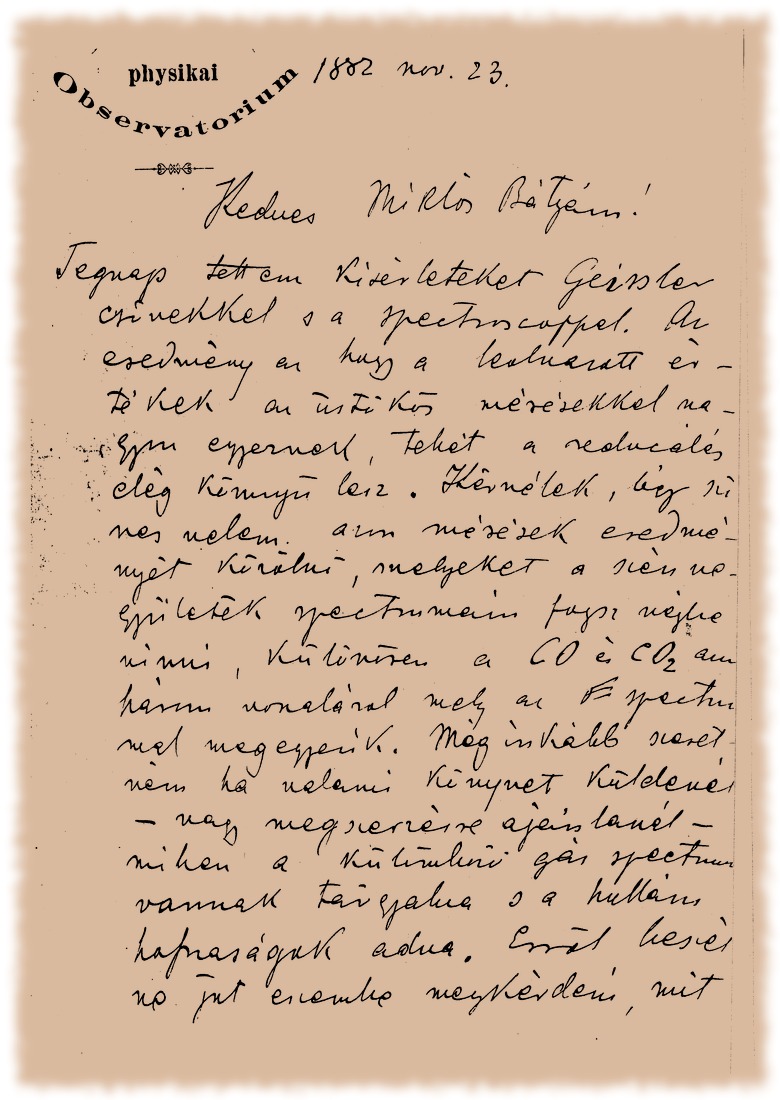 physikai
Observatorium
1882 nov. 23.
Kedves Miklós Bátyám!
Tegnap tettem kisérleteket Geissler
csövekkel s a spectroscoppel. Az
eredmény az hogy a leolvasott ér-
tékek az üstökös mérésekkel na-
gyon egyeznek, tehát a reducálás
elég könnyű lesz. Kérnélek, légy szi
ves velem azon mérések eredmé-
nyét közölni, melyeket a szénve-
gyületek spectrumain fogsz véghe
vinni, különösen a CO és CO2 azon
három vonaláról mely az spectru
mal megegyezik. Még inkább szeret
ném ha valami könyvet küldenél
— vagy megszerzésre ajánlanál —
miben a különböző gáz spectrum
vannak tárgyalva s a hullám
hosszaságok adva. Erről beszél
ve jut eszembe megkérdezni, mit